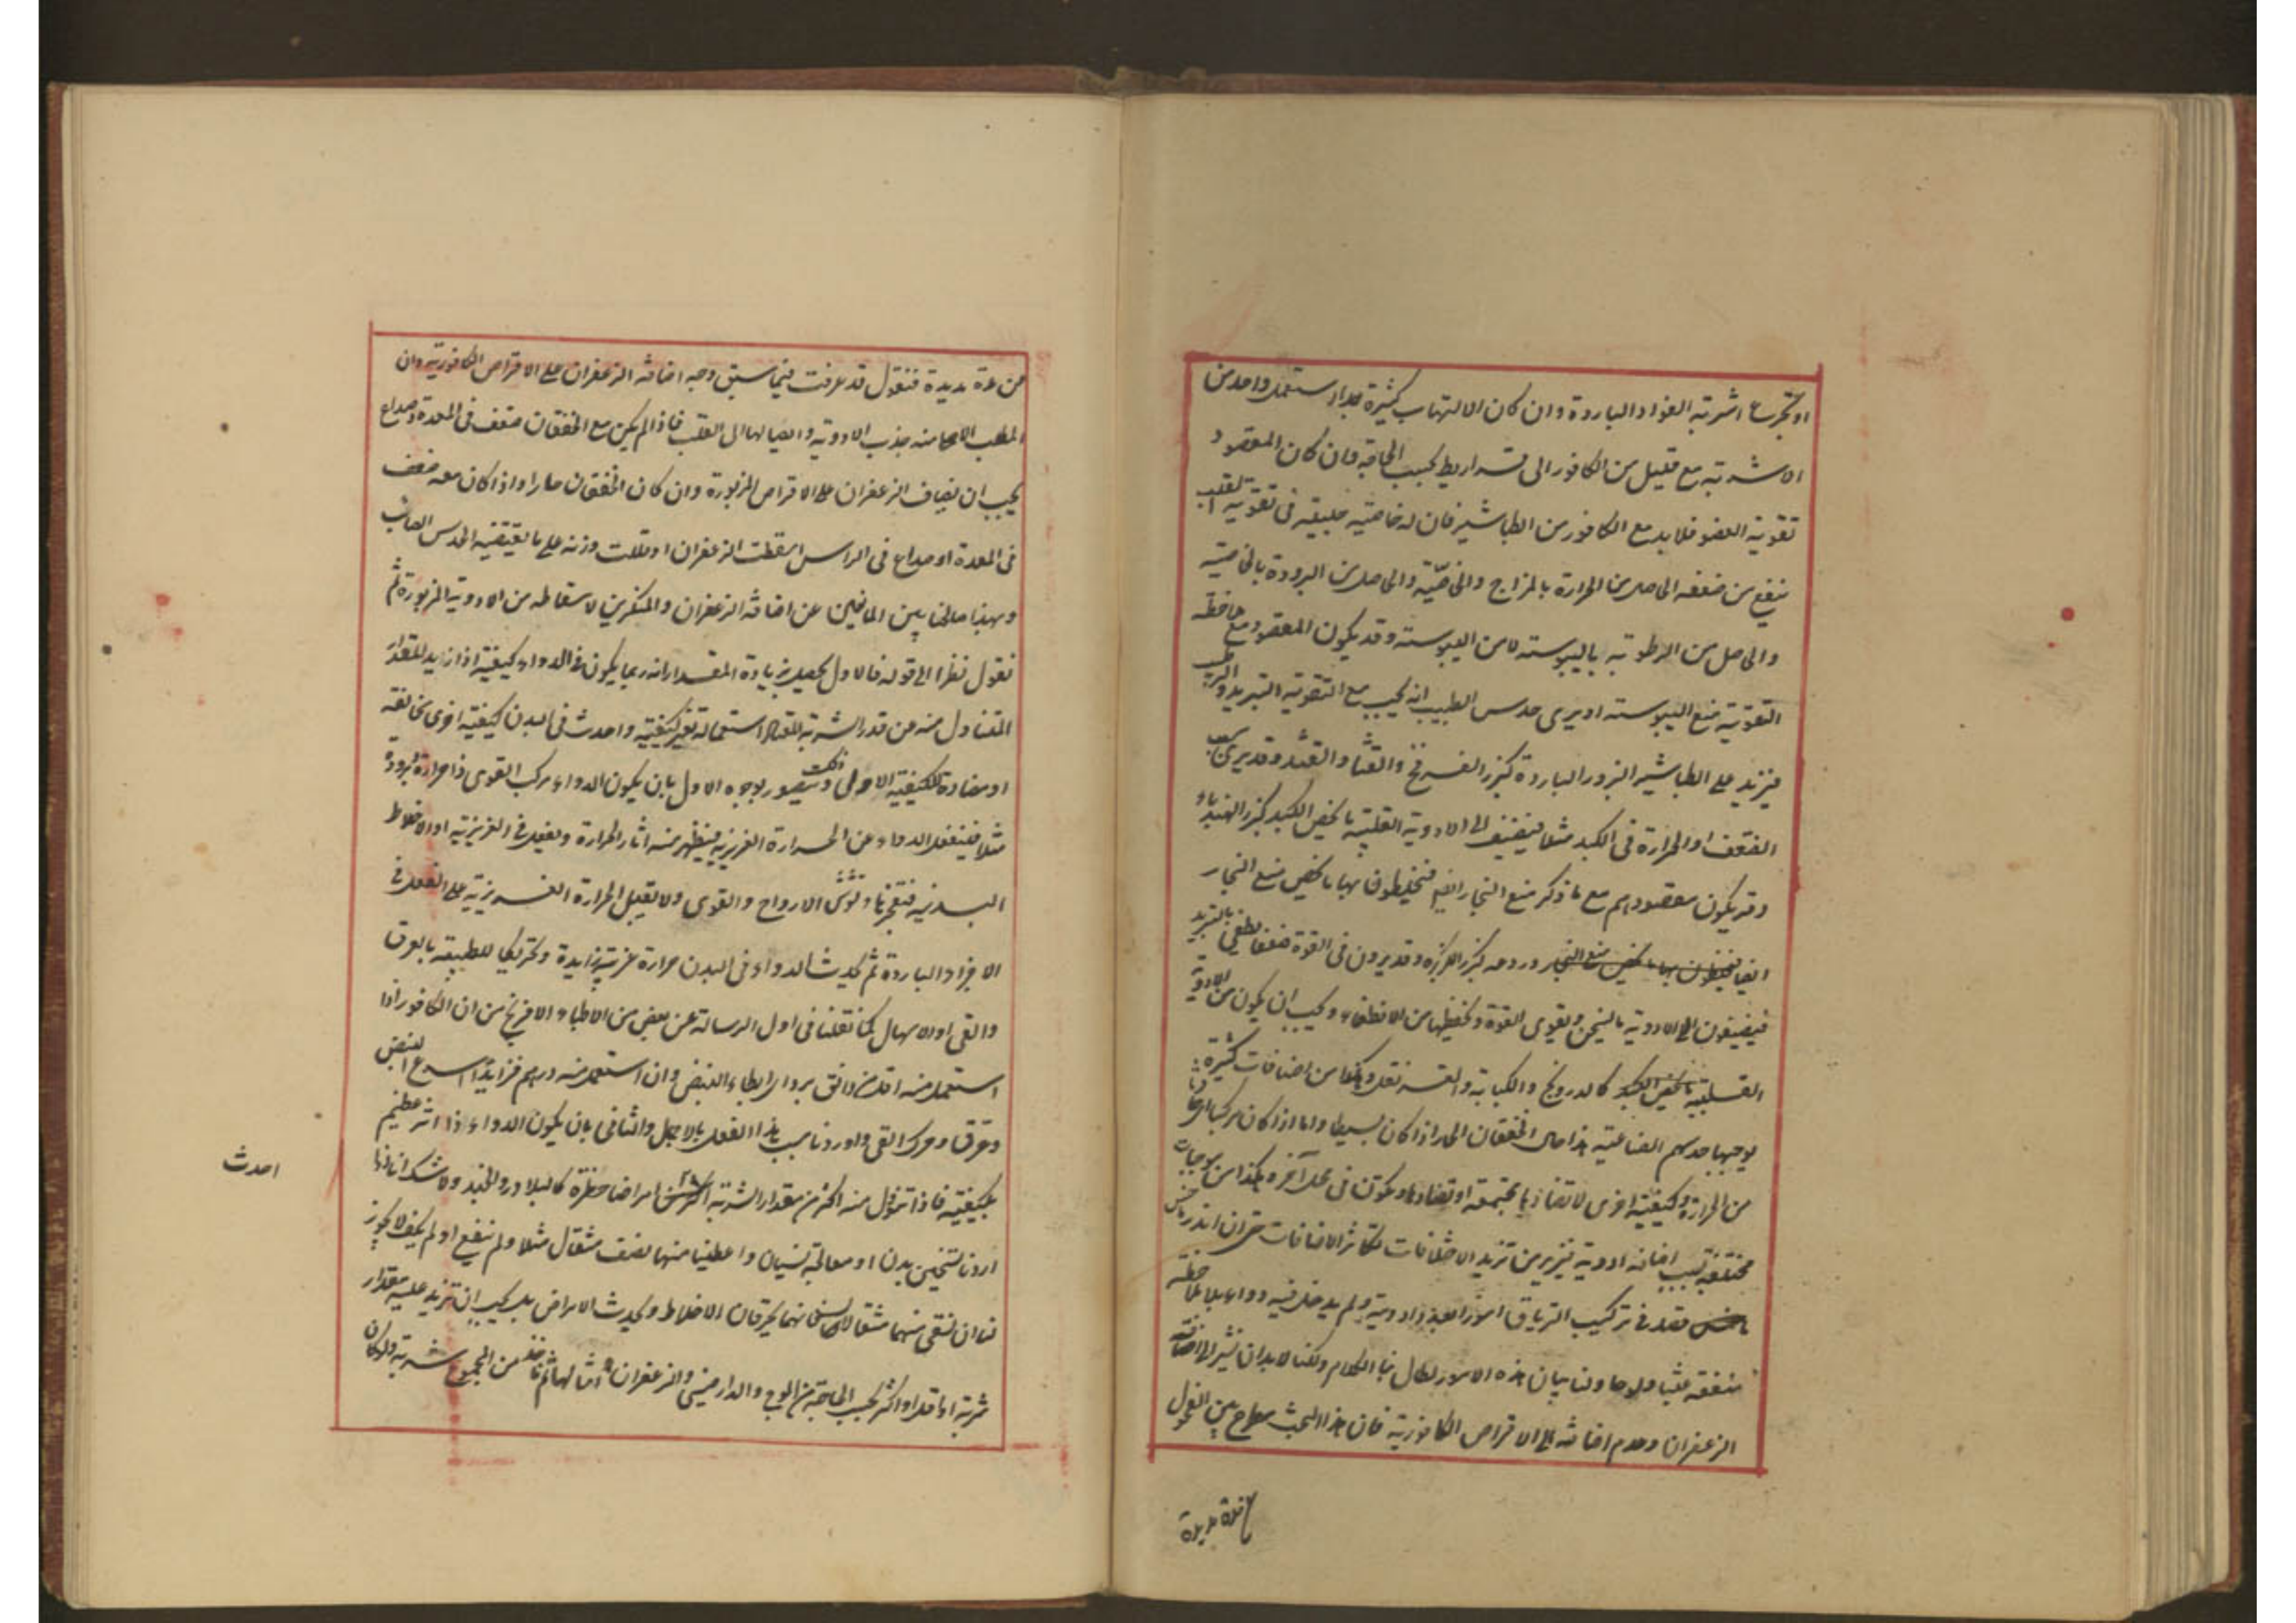 او تجرع اشربته الفواد الباردة وان كان الالتهاب كثيرة جدا استعمل واحد من
الاشربة مع قليل من الكافور الى قراريط بحسب الحاجة فان كان المقصود
تقوية العضو فلا بد مع الكافور من الطباشير فان له خاصية عجيبة فى تقوية القلب
ينفع من ضعفه الحاصل من الحرارة بالمزاج والخاصّية والحاصل من البرودة بالخاصية
والحاصل من الرطوبة باليبوسته لا من اليبوسته وقد يكون المقصود مع حافظة
التقوية منع اليبوسته او يرى حدس الطبيب انه يجب مع التقوية التبريد والترطيب
فيزيد على الطباشير البزور الباردة كبزر الفرفخ والقثا والقثد وقد يرى
الضعف او الحرارة فى الكبد مثلا فيضيف الى الادوية القلبية ما يخص الكبد كبزر الهندباء
وقد يكون مقصودهم مع ما ذكر منع البخار ايضا فيخلطون بها ما يخص منع البخار
ايضا فيخلطون بها ما يخص منع البخار وردعه كبزر الكزبره وقد يرون فى القوة ضعفا يطفى بالتبريد
فيضيفون الى الادوية ما يسخن ويقوى القوة ويحفظها من الانطفاء ويجب ان يكون من الادوية
القلبية ما يخص الكبد كالدرونج والكبابة والقرنفل وهكذا من اضافات كثيرة
يوجبها حدسهم الصناعية هذا حال الخفقان الحار اذا كان بسيطا واما اذا كان مركبا
من الحرارة وكيفية اخرى لا تضادها مجتمعة او تضادها وتكون فى محل آخر وهكذا من موجبات
مختلفة تجب اضافة ادوية فيزيد من تزيد الاختلافات تكاثر الاضافات حتى ان اندر
ماخس فقد فى تركيب الترياق امورا لعدة ادوية ولم يدخل فيه دواء بلا ملاحظة
منفعة عبثا ولو حاولنا بيان هذه الامور لطال بنا الكلام ولكنا لا بد ان نشير الى اضافة
الزعفران وعدم اضافته الى الاقراص الكافورية فان هذا البحث مطرح بين الفحول
من عدة مديدة
من عدة مديدة فنقول قد عرفت فيما سبق وجه اضافة الزعفران على الاقراص الكافورية وان
المطلب الاصلى منه جذب الادوية وايصالها الى القلب فاذا لم يكن مع الخفقان ضعف فى المعدة وصداع
يجب ان يضاف الزعفران على الاقراص المزبورة وان كان الخفقان حارا واذا كان معه ضعف
فى المعدة او صداع فى الراس اسقطت الزعفران او قللت وزنه على ما يقتضيه الحدس الصائب
وبهذا صالحنا بين المانعين عن اضافة الزعفران والمنكرين لاسقاطه من الادوية المزبورة ثم
نقول نظرا الى قوله فالاول يحصل بزيادة المقدار انه ربما يكون فى الدواء كيفية اذا زيد المقدار
المتناول منه من قدر الشربة المعتاد استعماله تغير كيفيته واحدث فى البدن كيفية اخرى تخالفه
او مضادة للكيفية الاولى وذلك يتصور بوجوه الاول بان يكون الدواء مركب القوى ذا حرارة وبرودة
مثلا فينفعل الدواء عن الحرارة الغريزية فيظهر منه اثار الحرارة ويفعل فى الغريزية او الاخلاط
البدنية فتفجرها وتوش الارواح والقوى ولا تقبل الحرارة الغريزية على الفعل فى
الاجزاء الباردة ثم يحدث الدواء فى البدن حرارة غريبة زايدة وتحريكا للطبيعة بالعرق
والقى او الاسهال كما نقلنا فى اول الرسالة عن بعض من الاطباء الافرنج من ان الكافور اذا
استعمل منه اقل من دانق برد وابطاء النبض وان استعمل منه درهم فزايدا اسرع النبض
وعرق وحرك القى واوردنا سبب هذا الفعل بالاجمال والثانى بان يكون الدواء ذا اثر عظيم
بكيفيته فاذا تنوول منه اكثر من مقدار الشربة احدث امراضا خطرة كالبلادر والجند ولا شك انا اذا
اردنا تسخين بدن او معالجة نسيان واعطينا منهما نصف مثقال مثلا ولم ينفع او لم يكف لا يجوز
لنا ان نسقى منهما مثقالا لانهما يحرقان الاخلاط ويحدث الامراض بل يجب ان نزيد عليه مقدار
شربة او اقل او اكثر بحسب الحاجة من الوج والدارصينى والزعفران وامثالها ثم ناخذ من المجموع شربة ولو كان
احدث